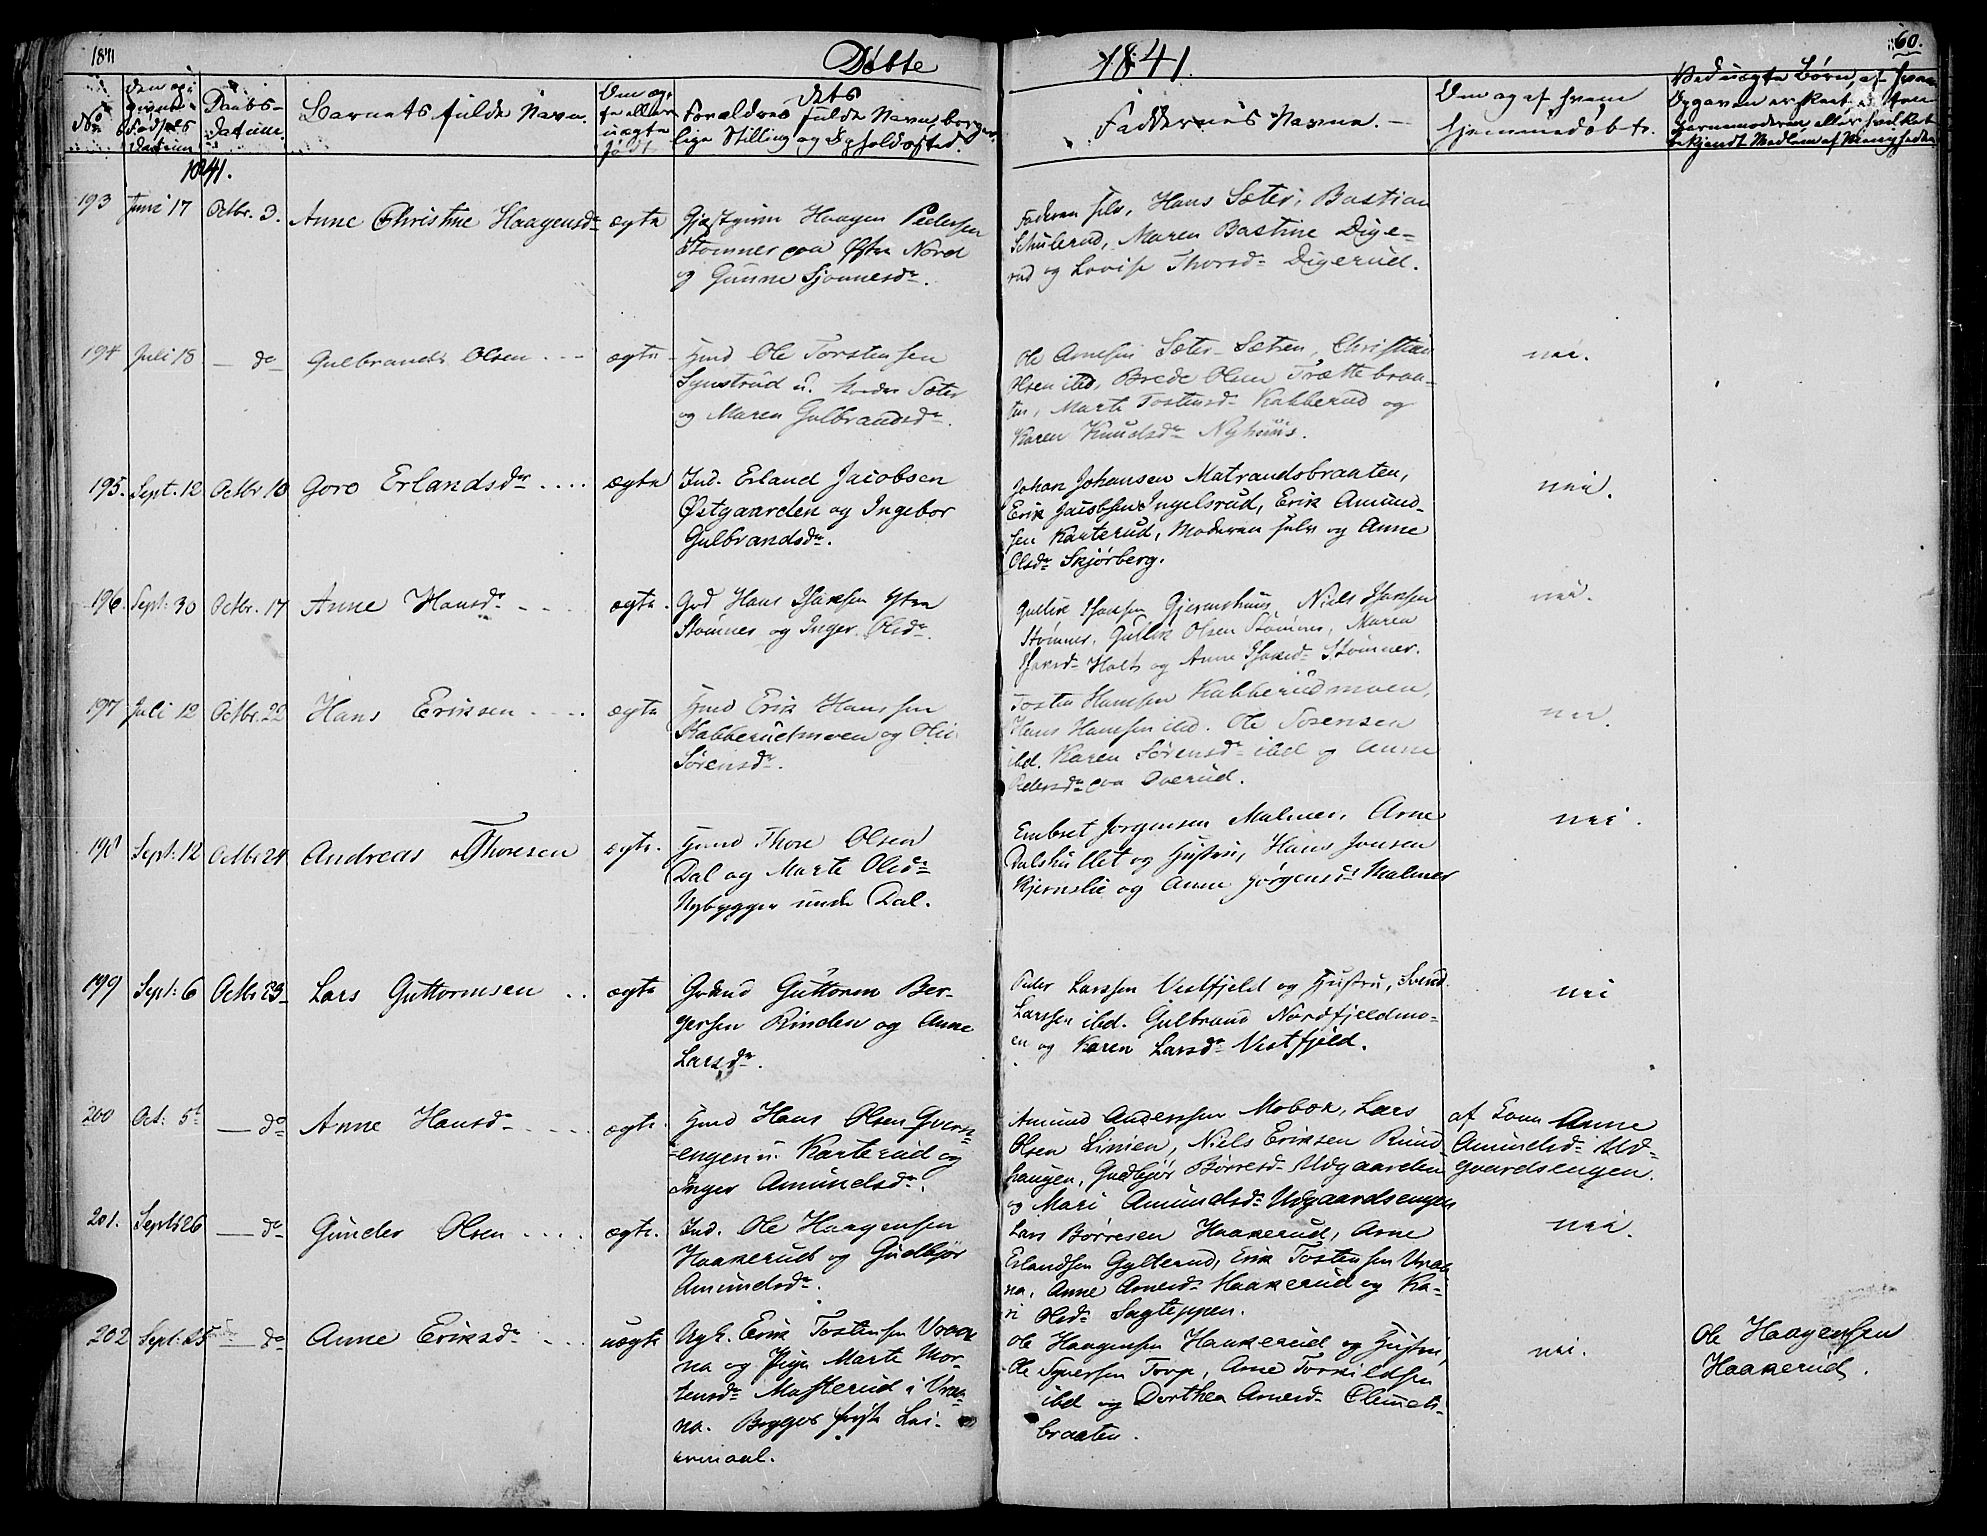 1841 Døbte 1841. 60.
No Fødsels Datum
Daabs-Datum.
Barnets fulde Navn.
Forældres fulde Navn, borgerlige Stilling og Opholdssted.
Faddernes Navne. —
Om og af hvem hjemmedøbt.
1841.
193 Juni 17 Octbr. 3. Anne Christine Haagensdr ægte Gjæstgiver Haagen Pedersen
Stømner paa Øfre Nord
og Gunne Sjonnesdr.
Faderen selv, Hans Sæter, Bastian
Schulerud, Maren Bastine Dige-
rud og Lovise Thorsdr Digerud.
194 Juli 18 — do Gulbrand Olsen ægte Hmd Ole Torstensen
Lynstrud u. Sæter
og Maren Gulbrandsdr.
Ole Arnesen Sæter-Sætren, Christian
Olsen ibd, Brede Olsen Trættebraa-
ten, Marte Tostensdr Kabberud og
Karen Knudsdr Nyhuus.
nei.
195. Sept. 12 Octbr 10 Goro Erlandsdr ægte Ind. Erland Jacobsen
Østgaarden og Ingebor
Gulbrandsdr.
Johan Johansen Matrandsbraaten,
Erik Jacobsen Ingelsrud, Erik Amund-
sen Karterud, Moderen selv og Anne
Olsdr Skjørberg.
nei.
196. Sept. 30 Octbr. 17 Anne Hansdr ægte. Grd Hans Isaksen Yfre
Stømner og Inger Olsdr.
Gullik Isaksen Gjermshuus, Niels Isaksen
Stømner, Gullik Olsen Stømner, Maren
Isaksdr Holt og Anne Isaksdr Stømner.
nei.
197 Juli 12 Octbr. 22 Hans Eriksen ægte Hmd Erik Hanssen
Kabberudmoen og
Sørensdr.
Tosten Hanssen Kabberudmoen,
Hans Hanssen ibd. Ole Sørensen
ibd. Karen Sørensdr ibd og Anne
Pedersdr paa Overud.
nei.
198 Sept. 12 Octbr 24 Andreas Thoresen ægte. Hmd Thore Olsen
Dal og Marte Olsdr
Nybygger under Dal.
Embret Jørgensen Malmer, Arne
Dalshullet og Hustru, Hans Jonsen
Kjernslie og Anne Jørgensdr Malmer
nei.
199 Sept: 6 Octbr Lars Guttormsen ægte Grdmd Guttorm Ber-
gersen Rinden og Anne
Larsdr.
Peder Larssen Vestfjeld og Hustru, Svend
Larssen ibd. Gulbrand Nordfjeldmo-
en og Karen Larsdr Vestfjeld.
nei
200 Oct: 5t — do Anne Hansdr ægte. Hmd Hans Olsen
engen u. Karterud og
Inger Amundsdr.
Amund Anderssen Mobæk, Lars
Olsen Linien, Niels Eriksen Rund-
haugen, Gudbjør Børresdr Udgaarden
og Mari Amundsdr Udgaardsengen
af Anne
Amundsdr Ud-
gaardsengen.
201. Septb 26 — do Gunder Olsen ægte. Ind. Ole Haagensen
Haakerud og Gudbjør
Amundsdr.
Lars Børresen Haakerud, Arne
Erlandsen Gylterud, Erik Tostensen Vraa-
na, Anne Arnesdr Haakerud og Ka-
ri Olsdr Sagteppen.
nei.
202 Sept. 25 — do Anne Eriksdr uægte Ugk. Erik Tostensen Vraa-
na og Pige Marte Mor-
tensdr Masterud i Vraa-
na. Begges første Lei-
ermaal.
Ole Haagensen Haakerud og Hustru,
Ole Syversen Torp, Arne Torkildsen
ibd og Dorthea Arnesdr Clemets-
braaten.
nei.
Ole Haagensen
Haakerud.